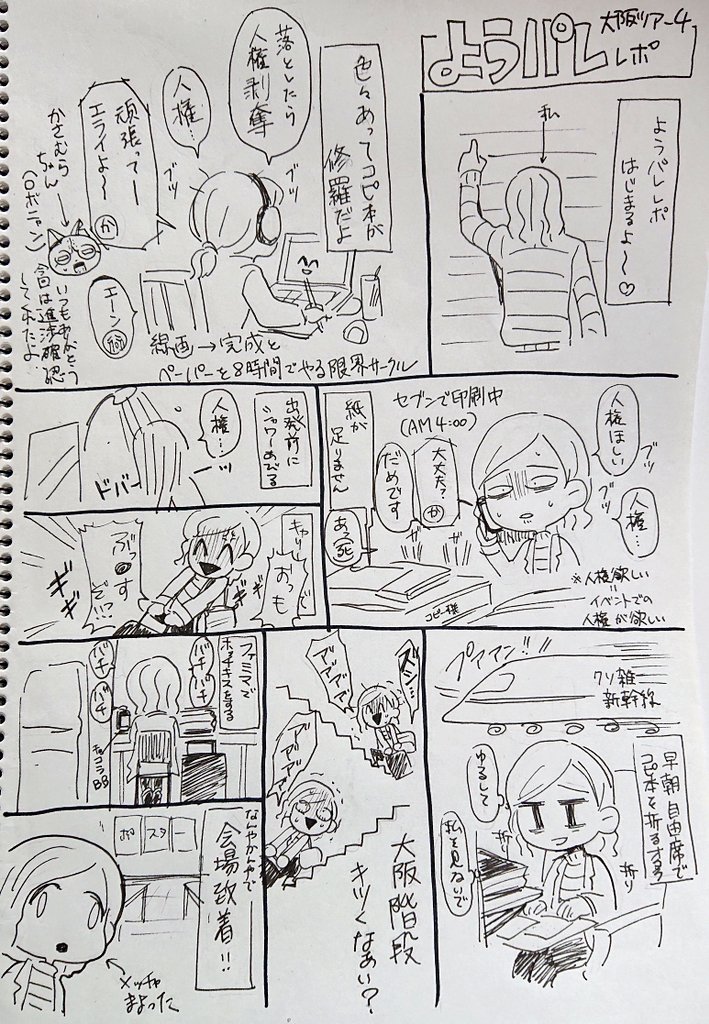 大阪ツアー4
ようパレ
レポ
ようパレレポ
はじまるよ〜♡
私
色々あってコピ本が
修羅だよ
落としたら
人権剥奪
人権…
ブツ
ブツ
頑張ってー
エライよ〜
か
かさむら
ちゃん
(ロボニャン)
いつもありがとう
今回は進捗確認
してたよ
エーン
線画→完成と
ペーパーを8時間でやる限界サークル
セブンで印刷中
(AM4:00)
人権ほしい
ブツ
ブツ
人権…
大丈夫?
か
だめです
紙が
足りません
あっ死
ガ
ガ
コピー機
※人権欲しい
=
イベントでの
人権が欲しい
出発前に
シャワーあびる
人権…
ドバー
キャリー
おっも
ぶっす
ぞ!?
ギ
ギ
ギ
ギ
プアァン!!
クソ雑
新幹線
早朝自由席で
コピ本を折るする
ゆるして
私を見ないで
折り
折り
ズシ…
アデデデ
アアアア
大阪階段
キツくなぁい?
ファミマで
ホッチキスをする
バチ
バチ
バチ
バチ
なんやかんやで
会場到着!!
ポスター
メッチャ
まよった